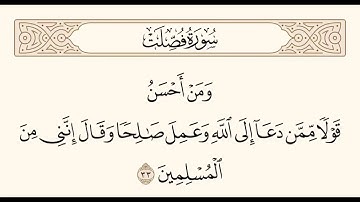 سُورَةُ فُصِّلَتْ
وَمَنْ أَحْسَنُ
قَوْلًا مِّمَّن دَعَآ إِلَى ٱللَّهِ وَعَمِلَ صَـٰلِحًا وَقَالَ إِنَّنِى مِنَ
ٱلْمُسْلِمِينَ ٣٣